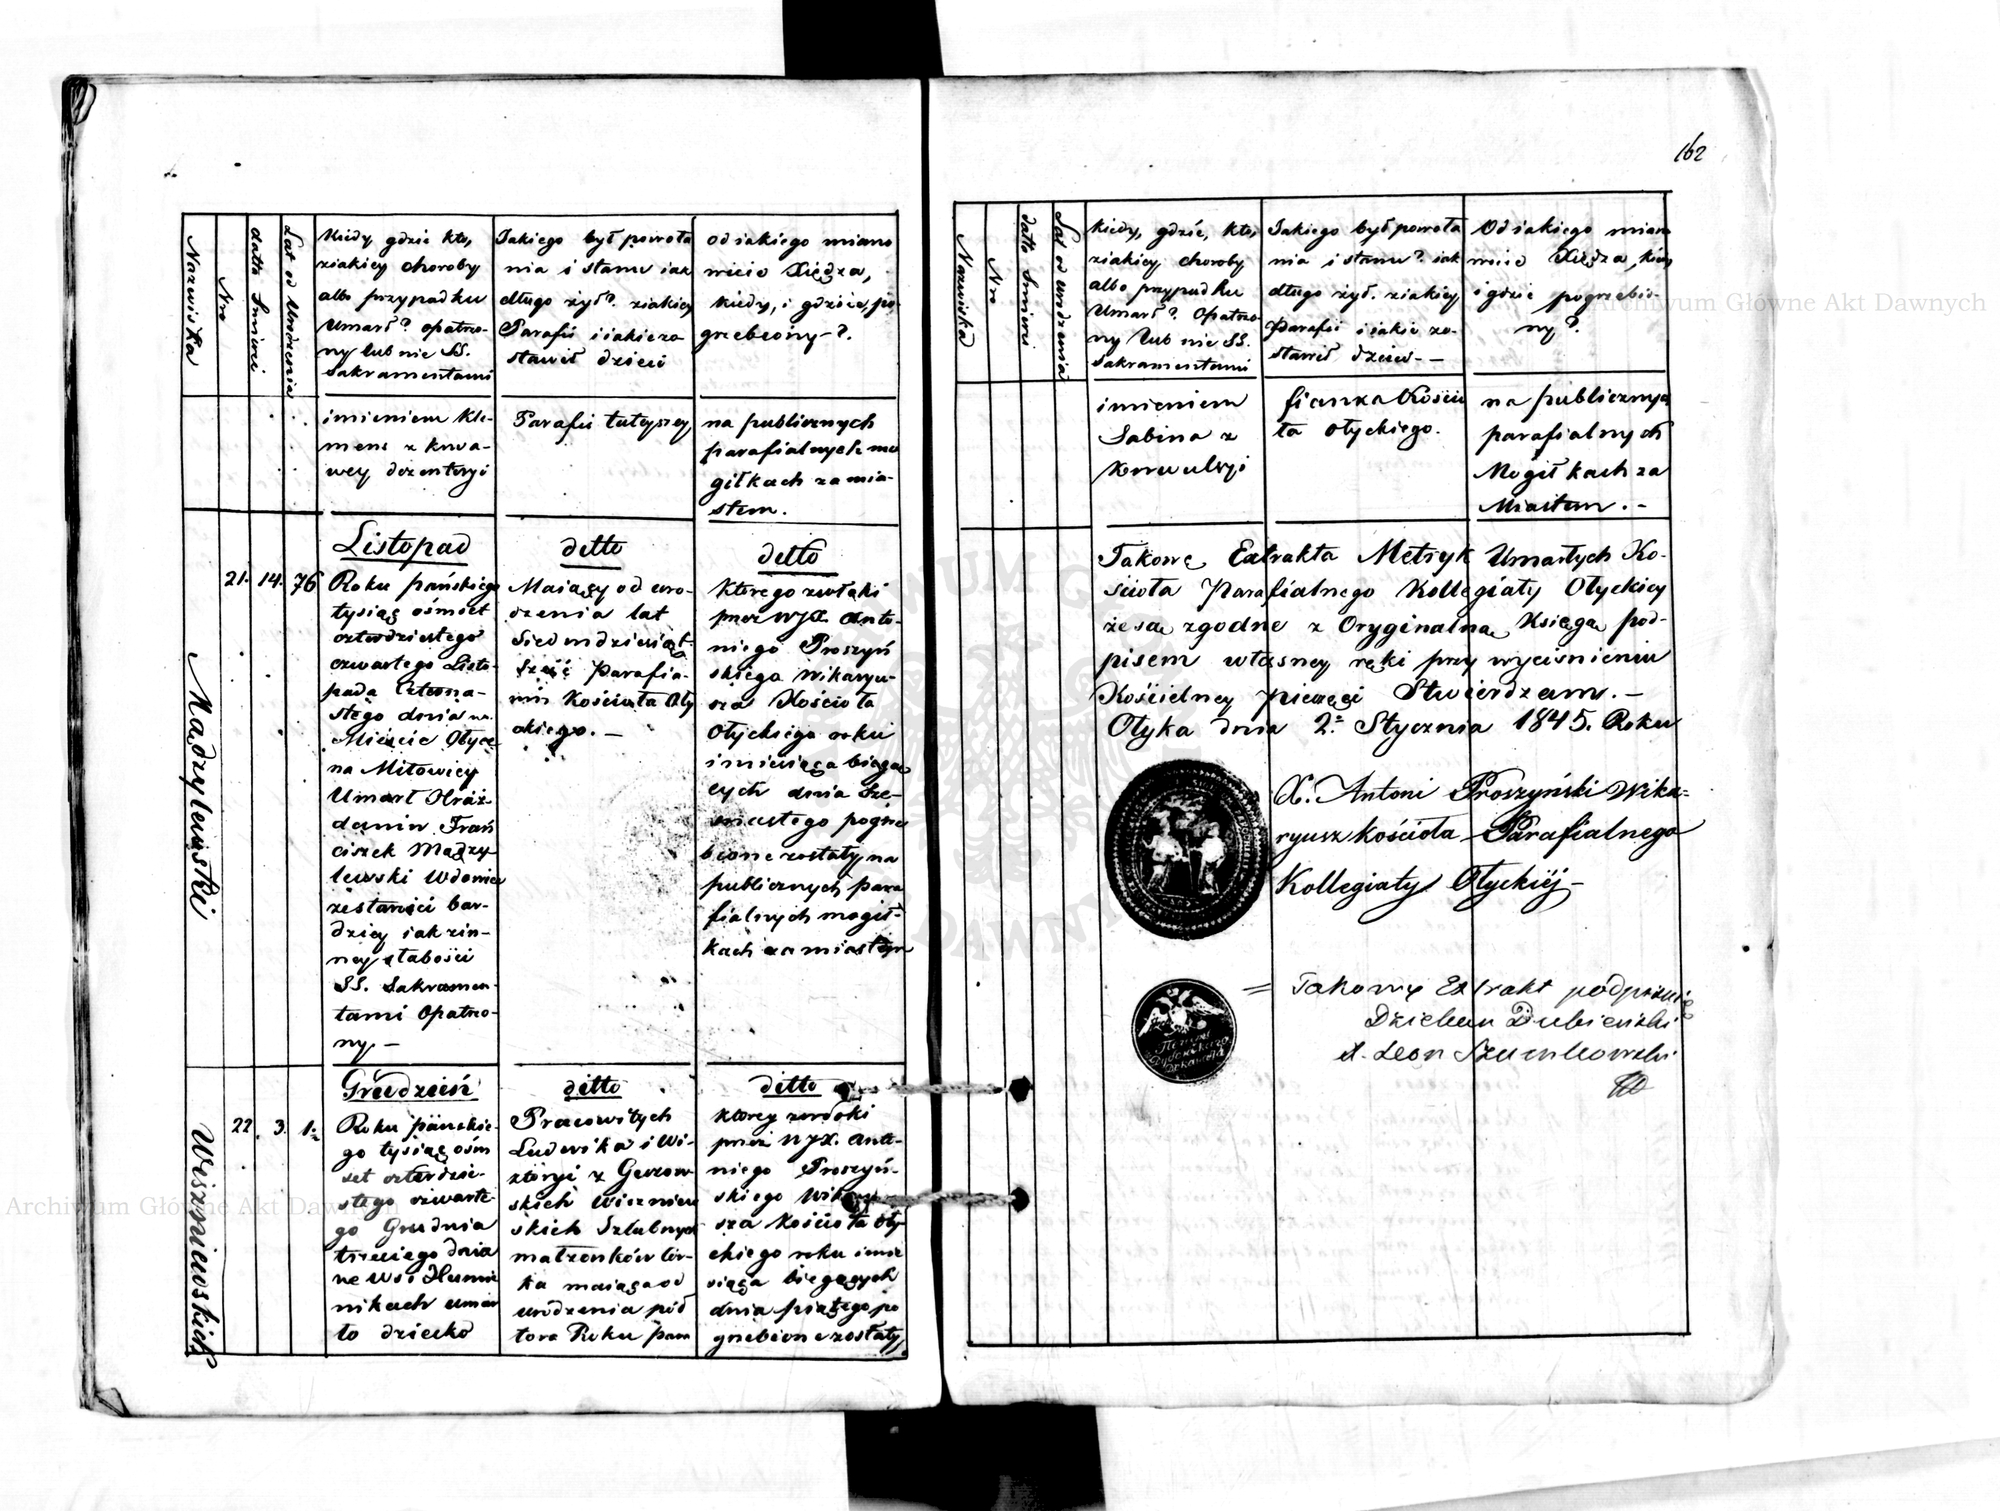 162
Nazwiska
Nro
datta Śmierci
Lat od Urodzenia
Kiedy gdzie kto,
ziakiey choroby
albo przypadku
Umarł? opatrzo-
ny lub nie SS.
Sakramentami
Jakiego był powoła
nia i stanu iak
długo żył? ziakiey
Parafii i iakie zo
stawił dzieci
od iakiego miano
wicie Xiędza,
kiedy, i gdzie, po
grzebiony-?.
imieniem Kle-
mens z krwa-
wey dezenteryi
Parafii tuteyszey
na publicznych
parafialnych mo
giłkach za mia-
stem.
Mądzylewski
21. 14. 76
Listopad
Roku pańskiego
tysiąc ośmset
czterdziestego
czwartego Listo-
pada Czterna-
stego dnia w
Mieście Ołyce
na Mitowicy
Umarł
Fran
ciszek Mądzy
lewski Wdowiec
zestarości bar-
dziey iak zin-
ney słabości
SS. Sakramen-
tami Opatrzo-
ny -
ditto
Maiący od uro-
dzenia lat
Siedmdziesiąt
Sześć Parafia-
nin Kościoła Oły
ckiego. -
ditto
Którego zwłoki
przez WJX. Anto-
niego Proszyń
skiego Wikaryu-
sza Kościoła
Ołyckiego roku
i miesiąca bieżą
cych dnia Sze-
snastego pogrze
bione zostały na
publicznych para
fialnych mogił-
kach za miastem
Wiszniewskich
22. 3. 1½
Grudzień
Roku pańskie-
go tysiąc ośm
set czterdzie-
stego czwarte-
go Grudnia
trzeciego dnia
we Wsi
nikach umar
ło dziecko
ditto
Pracowitych
Ludwika i Wi-
ktoryi z
skich Wiszniew
skich Szlubnych
małżonków cór-
ka maiąca od
urodzenia pół
tora Roku para
ditto
ktorey zwłoki
przez WJX. Anto-
niego Proszyń-
skiego Wikaryu
sza Kościoła Oły-
ckiego roku i mie
siąca bieżących
dnia piątego po
grzebione zostały
Nazwiska
Nro
datta Śmierci
Lat od urodzenia
kiedy, gdzie, kto,
ziakiey choroby
albo przypadku
Umarł? Opatrzo
ny lub nie SS.
Sakramentami
Jakiego był powoła
nia i stanu? iak
długo żył. ziakiey
Parafii i iakie zo-
stawił dzieci--
Od iakiego miano
wicie Xiędza, kiedy
i gdzie pogrzebio-
ny?.
imieniem
Sabina z
Konwulsyi
fianka Kościo
ła Ołyckiego.
na publicznych
parafialnych
Mogiłkach za
Miastem. -
Takowe Extrakta Metryk Umarłych Ko-
ścioła Parafialnego Kollegiaty Ołyckiey
że są zgodne z Oryginalną Księgą pod-
pisem własney ręki przy wyciśnieniu
Kościelney pieczęci Stwierdzam. -
Ołyka dnia 2. Stycznia 1845. Roku
X. Antoni Proszyński Wika-
ryusz kościoła Parafialnego
Kollegiaty Ołyckiéj -
= Takowy Extrakt podpisuię
Dziekan Dubieński
X. Leon Szumkowski
Archiwum Główne Akt Dawnych
Archiwum Główne Akt Dawnych